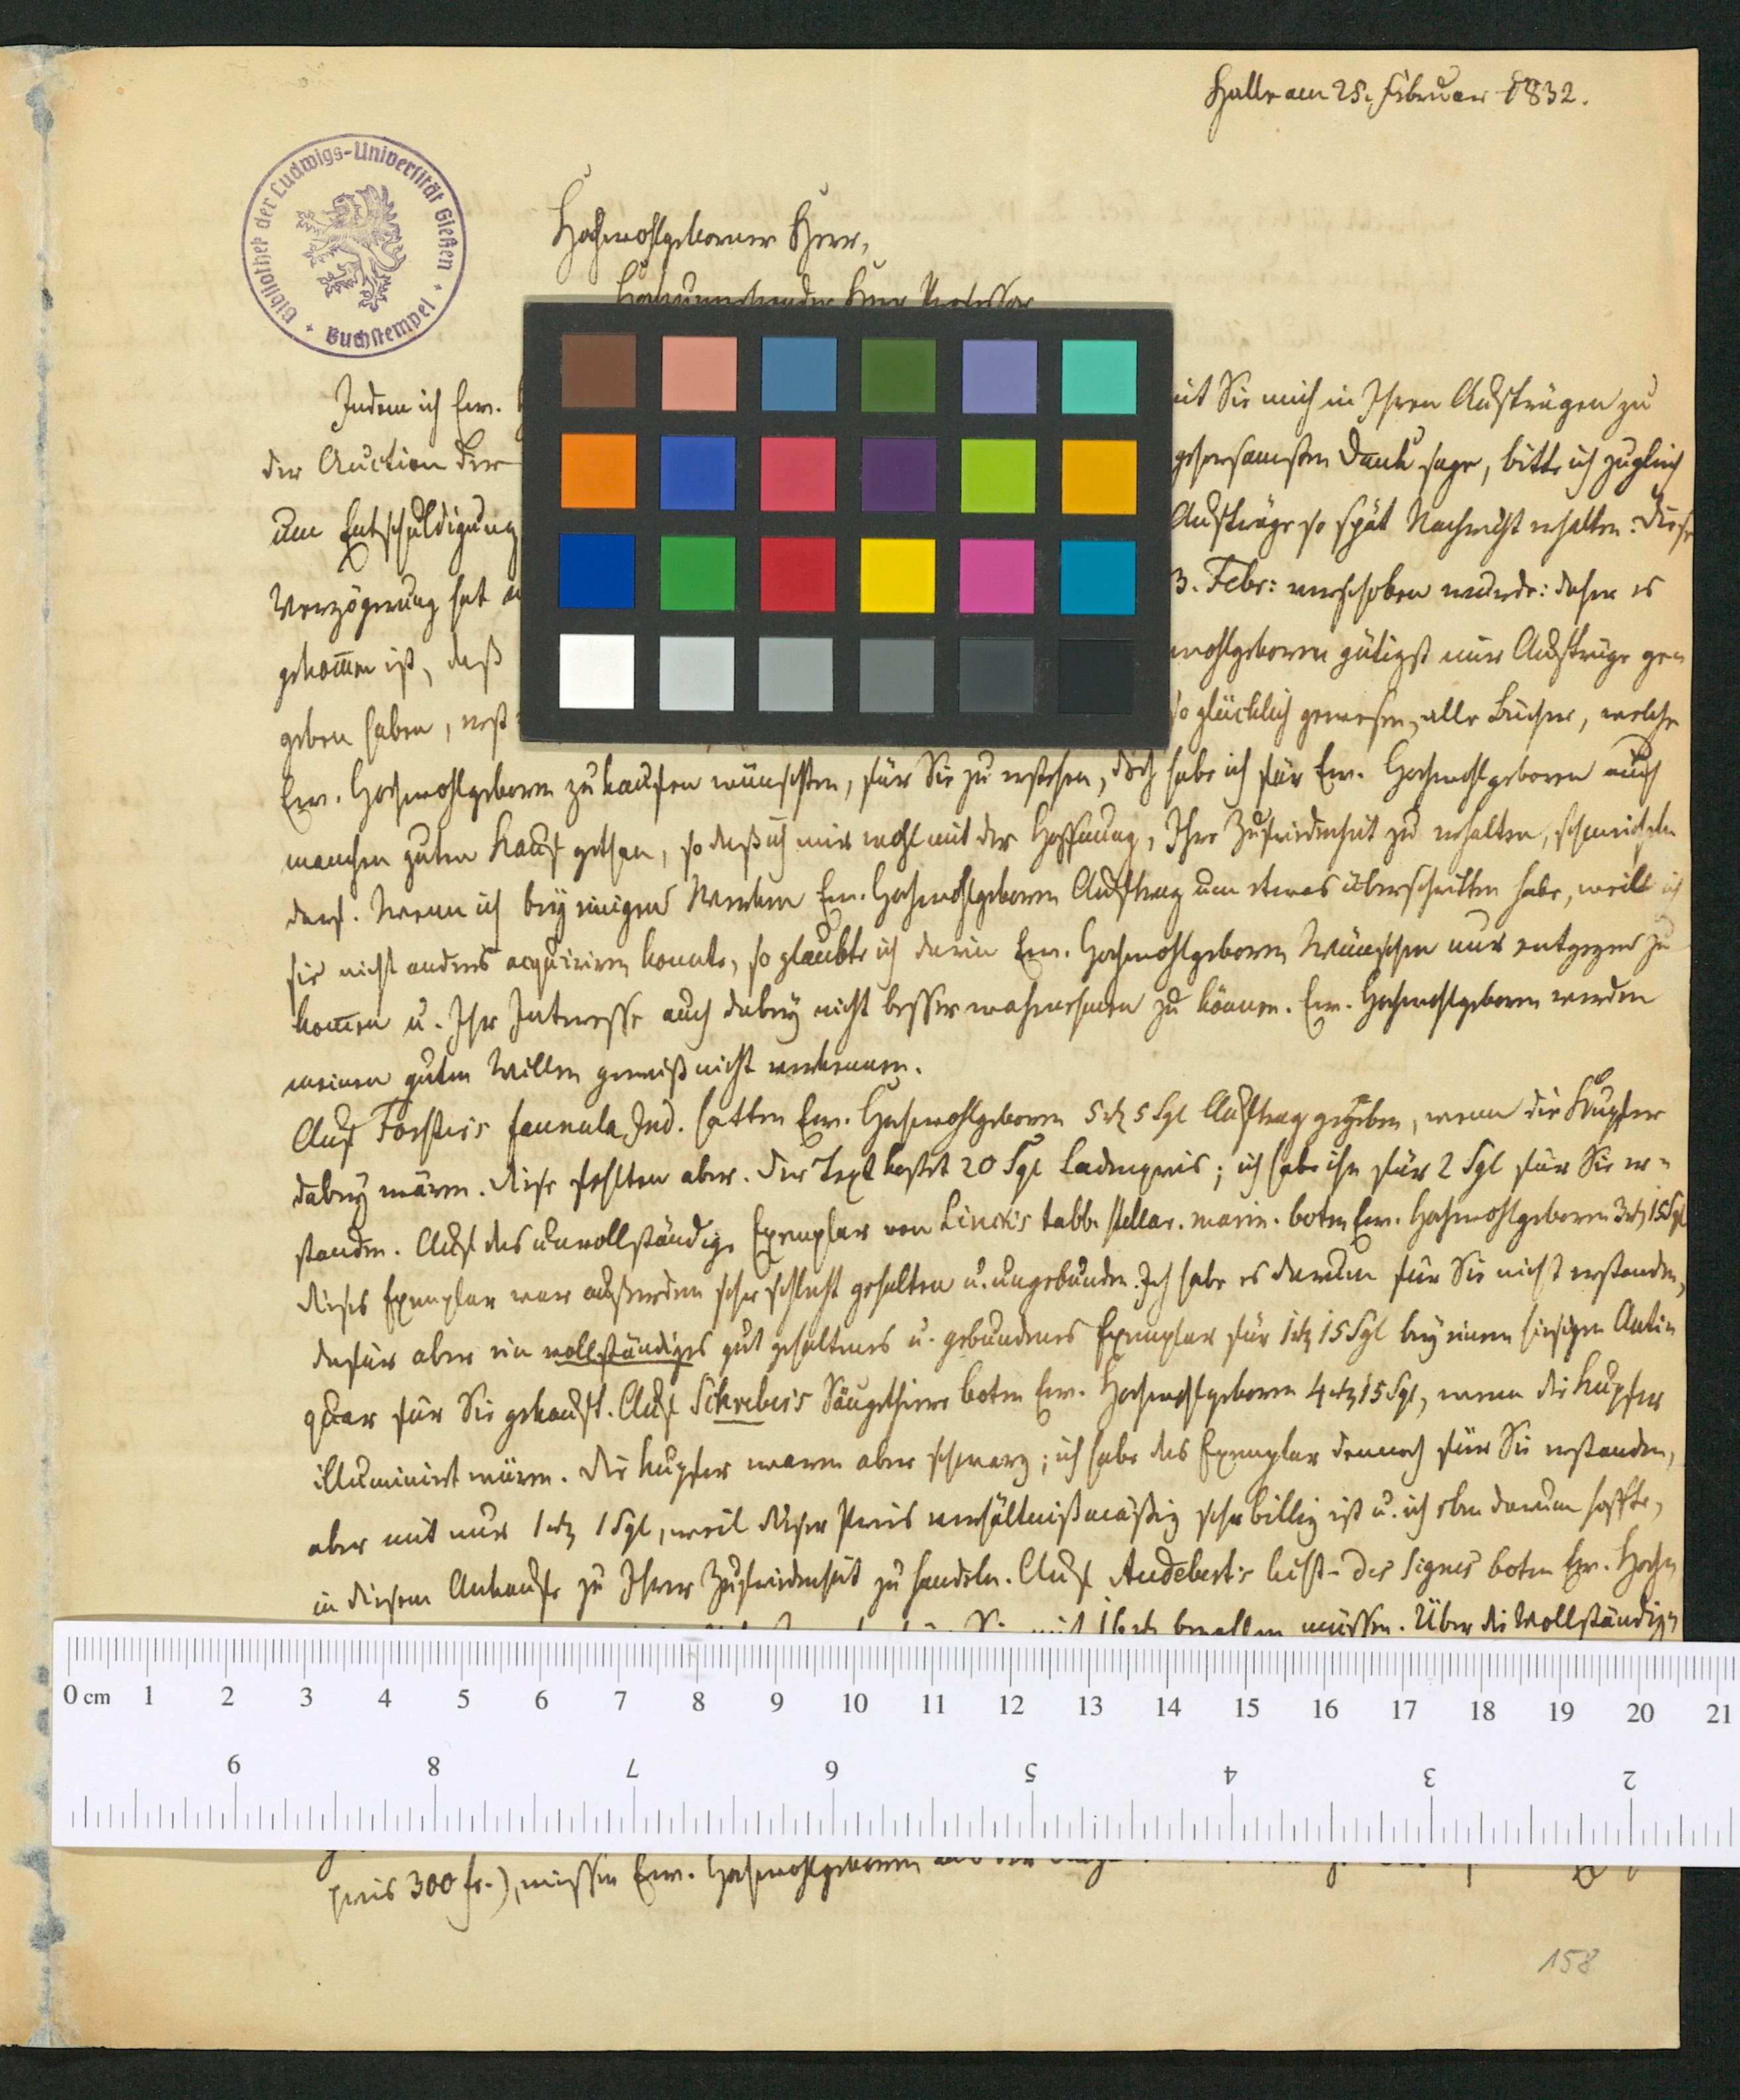 Halle am 25. Februar 1832.
Bibliothek der Ludwigs-Universität Gießen
Buchstempel
Hochwohlgeborner Herr,
Hochzuverehrender Herr Professor
Indem ich Ew. mit Sie mich in Ihren Aufträgen zu
der Auction der gehorsamsten Dank sage, bitte ich zugleich
um Entschuldigung Aufträge so spät Nachricht erhalten: diese
Verzögerung hat 3. Febr: verschoben wurde: daher es
gekom̅en ist, daß wohlgeboren gütigst mir Aufträge ge=
geben haben, so glücklich gewesen, alle Bücher, welche
Ew. Hochwohlgeboren zu kaufen wünschten, für Sie zu erstehen, doch habe ich für Ew. Hochwohlgeboren auch
manchen guten Kauf gethan, so daß ich mir wohl mit der Hoffnung, Ihre Zufriedenheit zu erhalten, schmeicheln
darf. Wenn ich bey einigen Werken Ew. Hochwohlgeboren Auftrag um etwas überschritten habe, weil ich
sie nicht anders acquiriren konnte, so glaubte ich darin Ew. Hochwohlgeboren Wünschen nur entgegen zu
kom̅en u. Ihr Interesse auch dabey nicht besser wahrnehmen zu können. Ew. Hochwohlgeboren werden
meinen guten Willen gewiß nicht verkennen.
Auf Forster's faunula Ind. hatten Ew. Hochwohlgeboren 5 rh 5 Sgl Auftrag gegeben, wenn die Kupfer
dabey wären. Diese fehlten aber. Der Text kostet 20 Sgl Ladenpreis; ich habe ihn für 2 Sgl für Sie er=
standen. Auf das unvollständige Exemplar von Linck's tabb. stellar. marin. boten Ew. Hochwohlgeboren 3 rh 15 Sgl
dieses Exemplar war außerdem sehr schlecht gehalten u. ungebunden. Ich habe es darum für Sie nicht erstanden,
dafür aber ein vollständiges gut gehaltenes u. gebundenes Exemplar für 1 rh 15 Sgl bey einem hiesigen Anti=
quar für Sie gekauft. Auf Schreber's Säugethiere boten Ew. Hochwohlgeboren 4 rh 15 Sgl, wenn die Kupfer
illuminirt wären. Die Kupfer waren aber schwarz; ich habe das Exemplar dennoch für Sie erstanden,
aber mit nur 1 rh 1 Sgl, weil dieser Preis verhältnißmäßig sehr billig ist u. ich eben darum hoffte,
in diesem Ankaufe zu Ihrer Zufriedenheit zu handeln. Auf Audebert's hist. des Signes boten Ew. Hoch=
Sie mit 16 rh bezahlen müssen. Über die Vollständig=
0 cm 1 2 3 4 5 6 7 8 9 10 11 12 13 14 15 16 17 18 19 20 21
9 8 7 6 5 4 3 2
preis 300 fr.), wissen Ew. Hochwohlgeboren
158